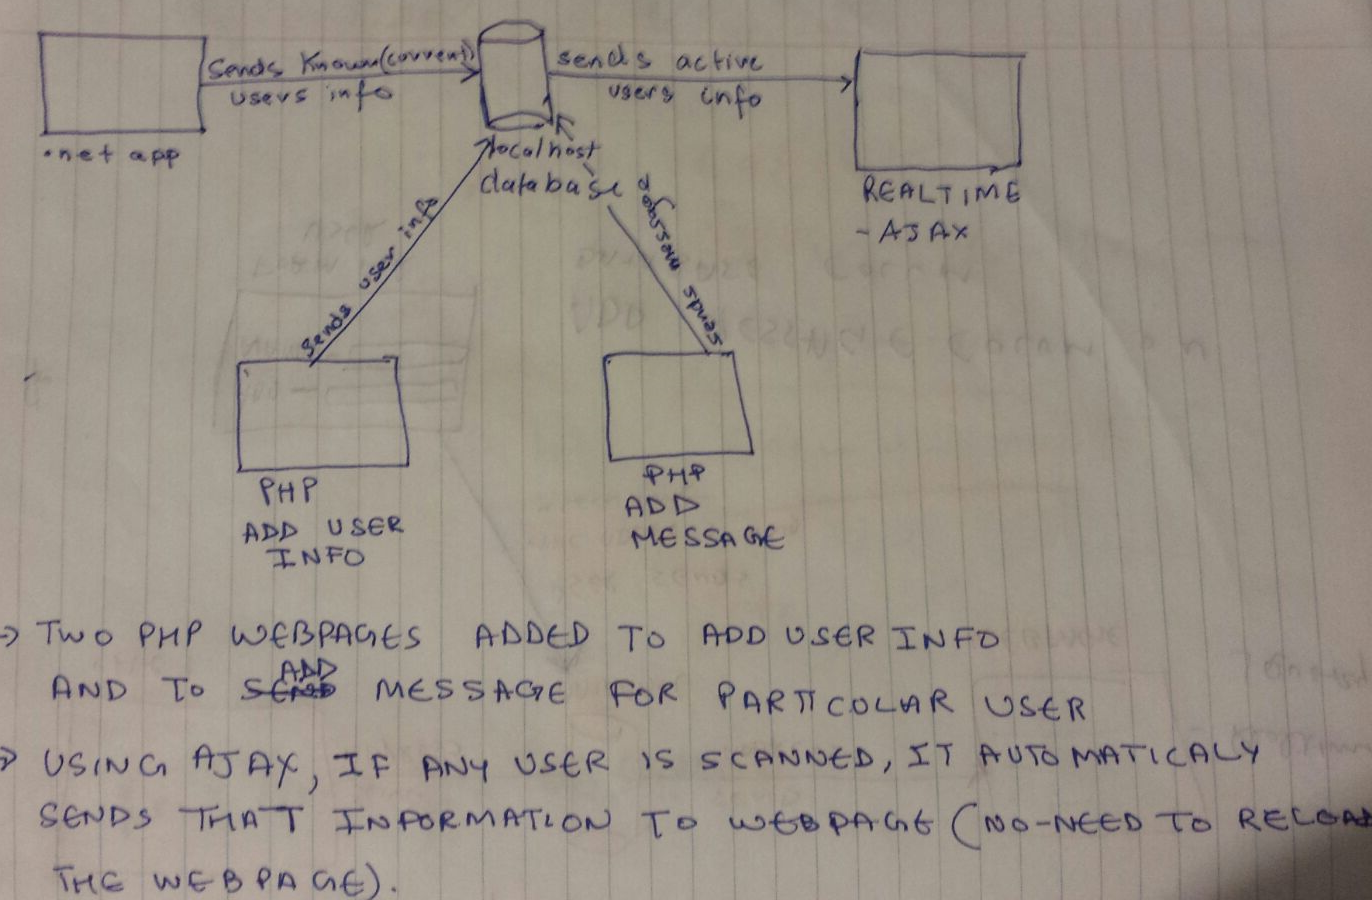 Sends Known(current)
users info
sends active
users info
.net app
localhost
database
REALTIME
- AJAX
Sends user info
sends message
PHP
ADD USER
INFO
PHP
ADD
MESSAGE
→ TWO PHP WEBPAGES ADDED TO ADD USER INFO
ADD
AND TO SEND MESSAGE FOR PARTICOLAR USER
→ USING AJAX, IF ANY USER IS SCANNED, IT AUTOMATICALY
SENDS THAT INFORMATION TO WEBPAGE (NO-NEED TO RELOAD
THE WEBPAGE).